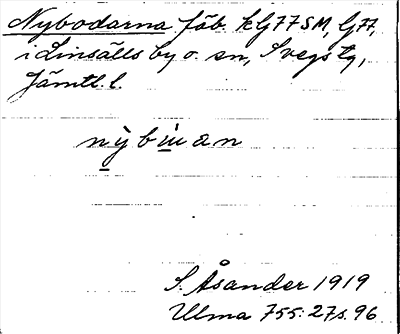 Nybodarna fäb. kG77SM, G77,
i Linsälls by o. sn, Svegs tg,
Jämtl. l.
nỳbɯan
S. Åsander 1919
Ulma 755:27 s. 96